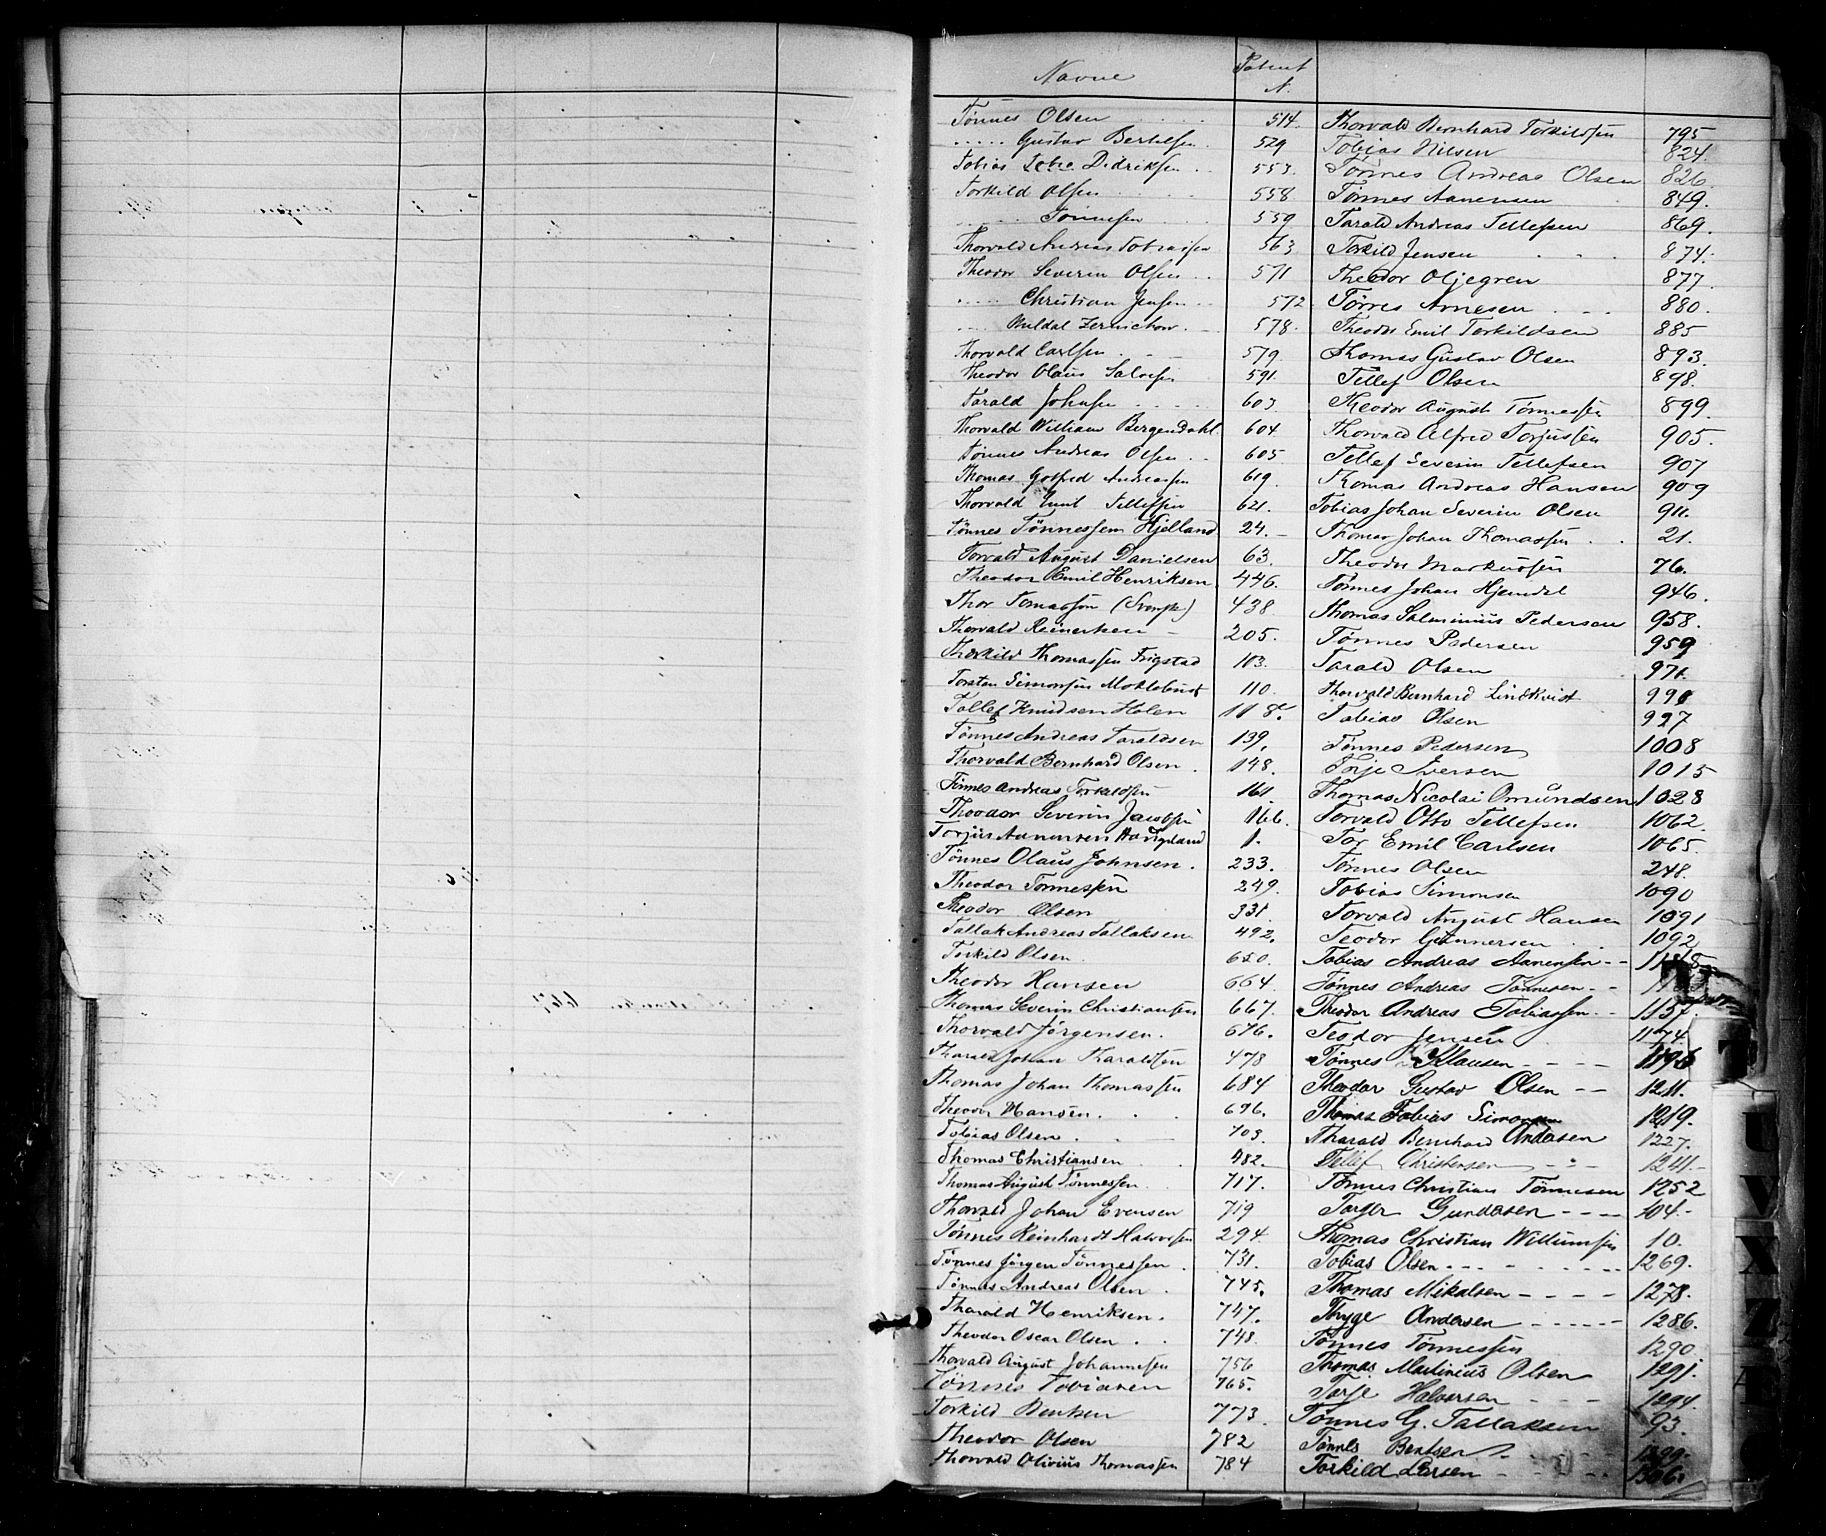 Navne Patent N.
Tønnes Olsen 514.
..... Gustav Bertelsen 529
Tobias Didriksen 553.
Torkild Olsen 558
..... Tønnesen 559
Thorvald Andreas Tobiassen 563
Theodor Severin Olsen 571
..... Christian Jensen 572
..... 578.
Thorvald Carlsen 579
Theodor Olaus Salvesen 591.
Tarald Johnsen 603
Thorvald William Bergendahl 604
Tønnes Andreas Olsen 605
Thomas Gotfred Andreassen 619.
Thorvald Emil Tellefsen 621.
Tønnes Tønnessen Hjelland 24.
Torvald August Danielsen 63.
Theodor Emil Henriksen 446.
Thor Tomasson (Svensk) 438
Thorvald Reinertsen 205.
Thorkild Thomassen Frigstad 103.
Torsten Simonsen 110.
Tollef Knudsen Holen 118.
Tønnes Andreas Taraldsen 139.
Thorvald Bernhard Olsen 148.
Tønnes Andreas Torkildsen 161
Theodor Severin Jacobsen 166.
Torjus Aanensen Haugland 1.
Tønnes Olaus Johnsen 233.
Theodor Tønnesen 249.
Theodor Olsen 331.
Tallak Andreas Tallaksen 492.
Torkild Olsen 650.
Theodor Hansen 664.
Thomas Severin Christiansen 667.
Thorvald Jørgensen 676.
Tharald Johan Tharaldsen 478
Thomas Johan Thomassen 684
Theodor Hansen 696.
Tobias Olsen 703.
Thomas Christiansen 482.
Thomas August Tønnessen 717.
Thorvald Johan Evensen 719
Tønnes Reinhardt Halvorsen 294
Tønnes Jørgen Tønnessen 731.
Tønnes Andreas Olsen 745.
Tharald Henriksen 747.
Theodor Oscar Olsen 748.
Thorvald August Johannesen 756
Tønnes Tobiasen 765.
Torkild Bentsen 773.
Theodor Olsen 782
Thorvald Olivius Thomassen 784
Thorvald Bernhard Torkildsen 795
Tobias Nilsen 824.
Tønnes Andreas Olsen 826
Tønnes Aanensen 849.
Tarald Andreas Tellefsen 869.
Torkild Jensen 874.
Theodor Oljegren 877.
Tørres Arnesen 880.
Theodor Emil Torkildsen 885
Thomas Gustav Olsen 893
Tellef Olsen 898.
Theodor August Tønnessen 899.
Thorvald Alfred Torjussen 905.
Tellef Severin Tellefsen 907
Thomas Andreas Hansen 909
Tobias Johan Severin Olsen 911.
Thomas Johan Thomassen 21.
Theodor Markussen 76.
Tønnes Johan Hjemdal 946.
Thomas Salminius Pedersen 958.
Tønnes Pedersen 959
Tarald Olsen 971.
Thorvald Bernhard Lindkvist 990
Tobias Olsen 997
Tønnes Pedersen 1008
Torje Iversen 1015
Thomas Nicolai Omundsen 1028
Torvald Otto Tellefsen 1062.
Tor Emil Carlsen 1065.
Tønnes Olsen 248.
Tobias Simonsen 1090
Torvald August Hansen 1091
Teodor Gunnersen 1092
Tobias Andreas Aanensen
Tønnes Andreas Tønnesen
Theodor Andreas Tobiassen 1157.
Teodor Jensen 1174.
Tønnes Klausen
Theodor Gustav Olsen 1211.
Thomas Tobias Simonsen 1219.
Tharald Bernhard Andersen 1227.
Tellef Christensen 1241.
Tønnes Christian Tønnesen 1252
Torger Gundersen 104.
Thomas Christian Willumsen 10.
Tobias Olsen 1269.
Thomas Mikalsen 1278.
Thyge Andersen 1286.
Tønnes Tønnessen 1290
Thomas Martinius Olsen 1291.
Torje Halvorsen 1294
Tønnes G. Tallaksen 93.
Tønnes Bentsen 1299.
Torkild Larsen 1306.
T
U
V
X
Z